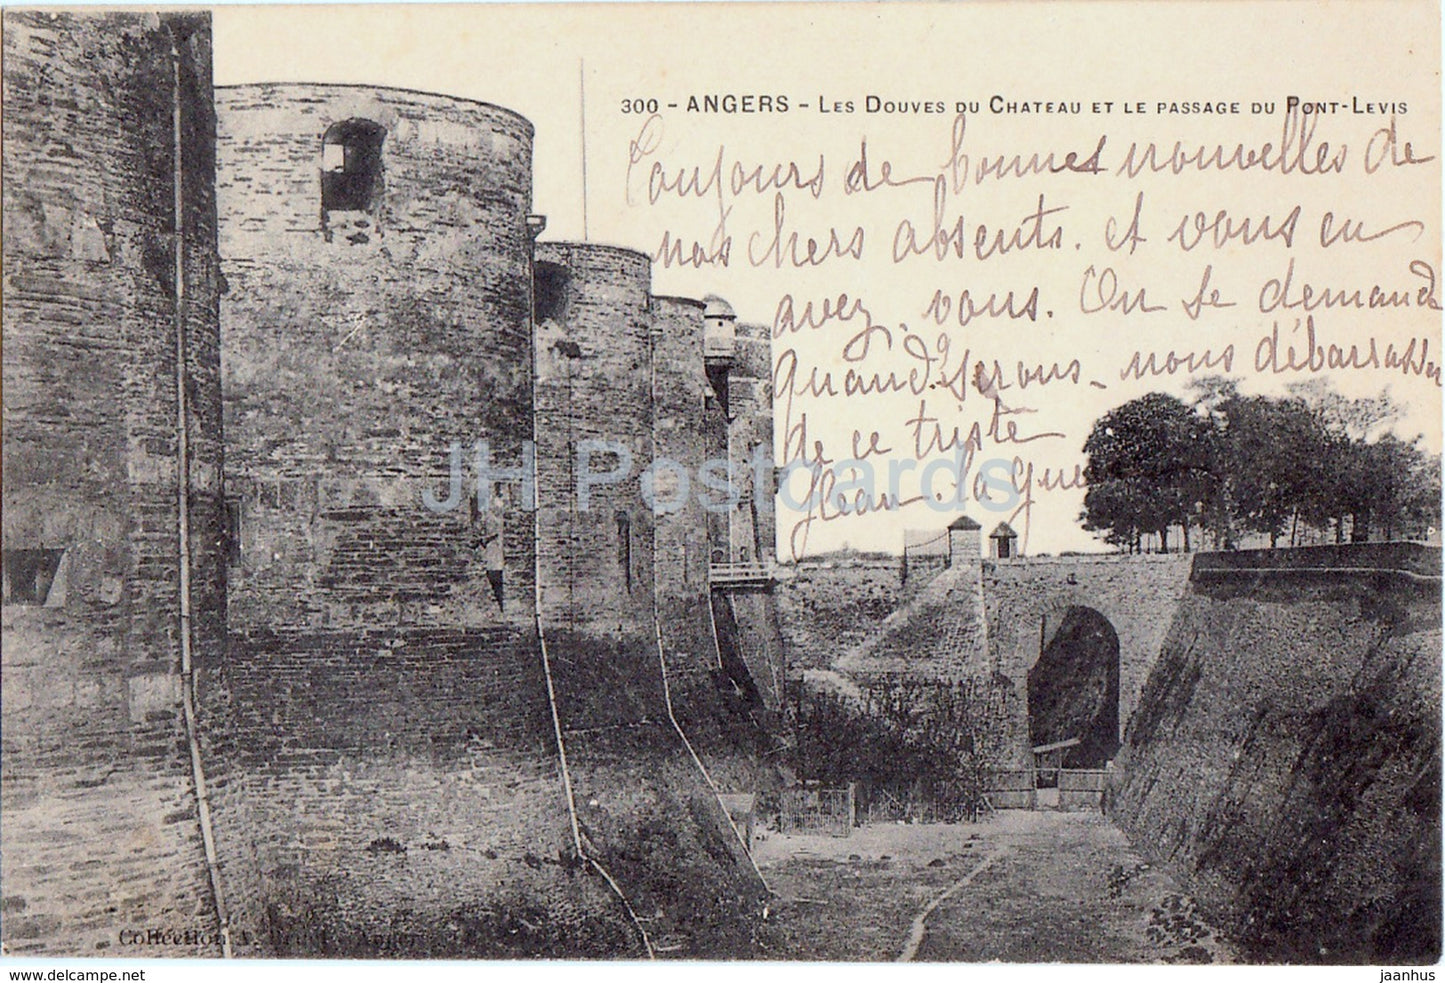 300 - ANGERS - LES DOUVES DU CHATEAU ET LE PASSAGE DU PONT-LEVIS
Toujours de bonnes nouvelles de
nos chers absents. et vous en
avez, vous. On se demande
Quand? serons-nous débarrassés
de ce triste
fléau. la gue
JH Postcards
Collection A. Angers
delcampe.net
jaanhus